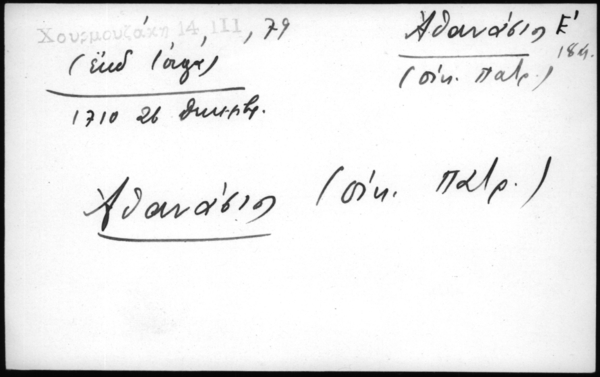 Χουρμουζάκη 14, III, 79
Ἀθανάσιος Ε΄
184.
(οἰκ. Πατρ.)
1710 26
Ἀθανάσιος (οἰκ. Πατρ.)